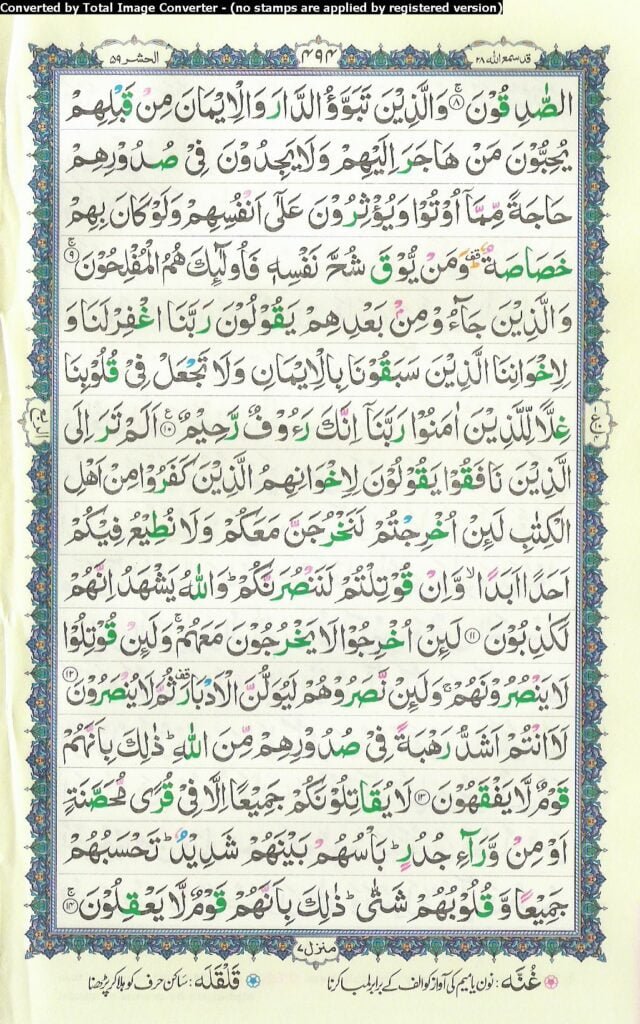 Converted by Total Image Converter - (no stamps are applied by registered version)
قد سمع الله ٢٨
٤٩٤
الحشر ٥٩
الصّٰدِقُوْنَ ۚ‏﴿۸﴾ وَالَّذِيْنَ تَبَوَّؤُ الدَّارَ وَالْاِيْمَانَ مِنْ قَبْلِهِمْ
يُحِبُّوْنَ مَنْ هَاجَرَ اِلَيْهِمْ وَلَا يَجِدُوْنَ فِىْ صُدُوْرِهِمْ
حَاجَةً مِّمَّاۤ اُوْتُوْا وَيُؤْثِرُوْنَ عَلٰٓى اَنْفُسِهِمْ وَلَوْ كَانَ بِهِمْ
خَصَاصَةٌ ؕ وَمَنْ يُّوْقَ شُحَّ نَفْسِهٖ فَاُولٰٓئِكَ هُمُ الْمُفْلِحُوْنَ ۚ‏﴿۹﴾
وَالَّذِيْنَ جَآءُوْ مِنْۢ بَعْدِهِمْ يَقُوْلُوْنَ رَبَّنَا اغْفِرْ لَنَا وَ
لِاِخْوَانِنَا الَّذِيْنَ سَبَقُوْنَا بِالْاِيْمَانِ وَلَا تَجْعَلْ فِىْ قُلُوْبِنَا
غِلًّا لِّلَّذِيْنَ اٰمَنُوْا رَبَّنَاۤ اِنَّكَ رَءُوْفٌ رَّحِيْمٌ ‏﴿۱۰﴾ اَلَمْ تَرَ اِلَى
الَّذِيْنَ نَافَقُوْا يَقُوْلُوْنَ لِاِخْوَانِهِمُ الَّذِيْنَ كَفَرُوْا مِنْ اَهْلِ
الْكِتٰبِ لَئِنْ اُخْرِجْتُمْ لَنَخْرُجَنَّ مَعَكُمْ وَلَا نُطِيْعُ فِيْكُمْ
اَحَدًا اَبَدًا ۙ وَّاِنْ قُوْتِلْتُمْ لَنَنْصُرَنَّكُمْ ؕ وَاللّٰهُ يَشْهَدُ اِنَّهُمْ
لَكٰذِبُوْنَ ‏﴿۱۱﴾ لَئِنْ اُخْرِجُوْا لَا يَخْرُجُوْنَ مَعَهُمْ ۚ وَلَئِنْ قُوْتِلُوْا
لَا يَنْصُرُوْنَهُمْ ۚ وَلَئِنْ نَّصَرُوْهُمْ لَيُوَلُّنَّ الْاَدْبَارَ ثُمَّ لَا يُنْصَرُوْنَ ‏﴿۱۲﴾
لَاَانْتُمْ اَشَدُّ رَهْبَةً فِىْ صُدُوْرِهِمْ مِّنَ اللّٰهِ ؕ ذٰلِكَ بِاَنَّهُمْ
قَوْمٌ لَّا يَفْقَهُوْنَ ‏﴿۱۳﴾ لَا يُقَاتِلُوْنَكُمْ جَمِيْعًا اِلَّا فِىْ قُرًى مُّحَصَّنَةٍ
اَوْ مِنْ وَّرَآءِ جُدُرٍ ؕ بَاْسُهُمْ بَيْنَهُمْ شَدِيْدٌ ؕ تَحْسَبُهُمْ
جَمِيْعًا وَّقُلُوْبُهُمْ شَتّٰى ؕ ذٰلِكَ بِاَنَّهُمْ قَوْمٌ لَّا يَعْقِلُوْنَ ۚ‏﴿۱۴﴾
منزل ۷
غُنَّه: نون یا میم کی آواز کو الف کے برابر لمبا کرنا
قَلْقَلَه: ساکن حرف کو ہلا کر پڑھنا